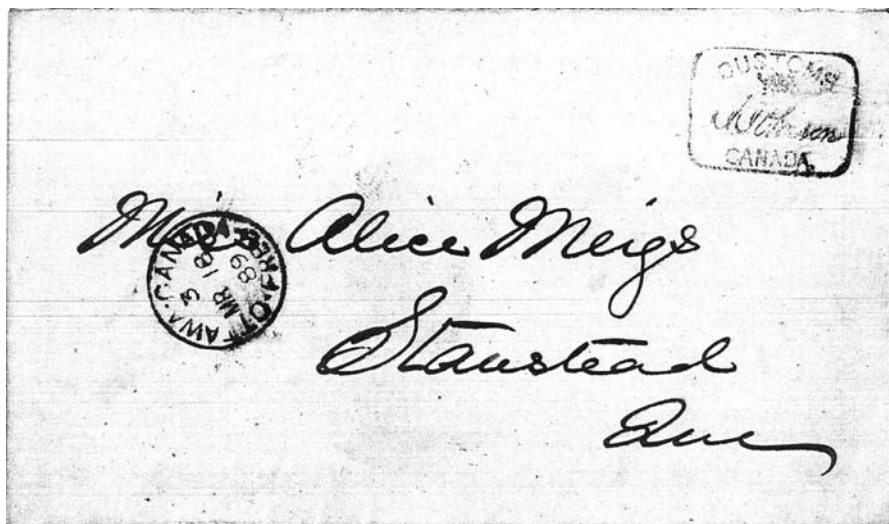 CUSTOMS
CANADA
Miss Alice Meigs
Stanstead
Que
OTTAWA·CANADA·FREE
3
MR 18
89